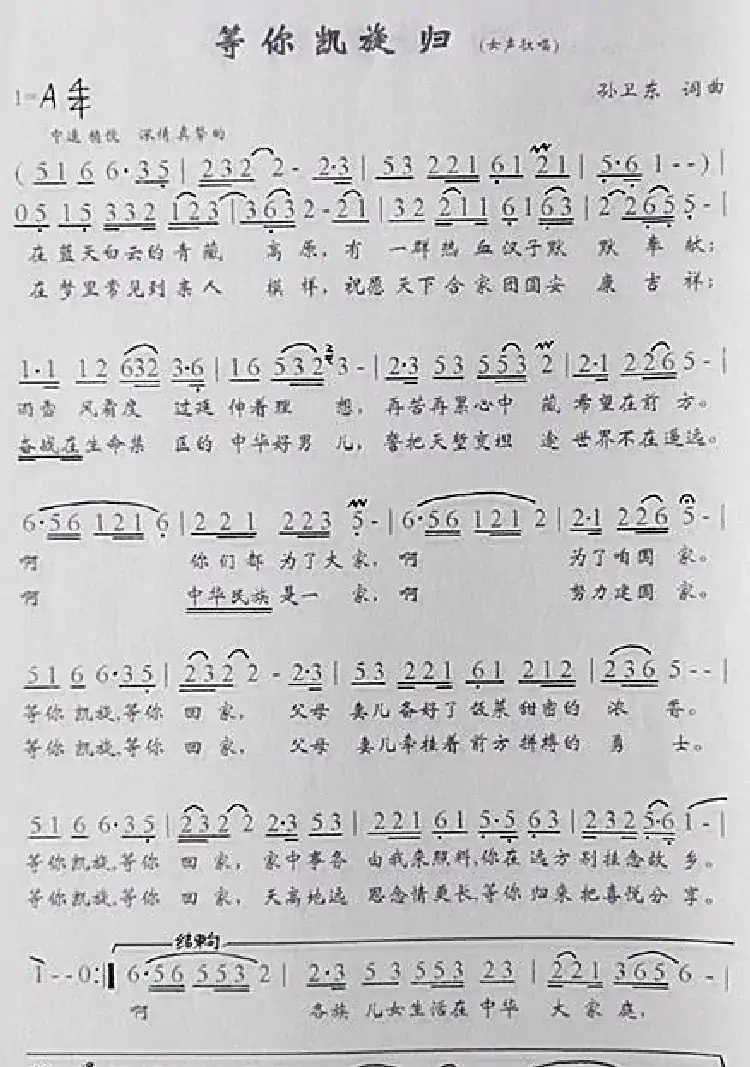 等你凯旋归 (女声独唱)
1=A 4/4
孙卫东 词曲
中速稍慢 深情真挚的
(51 6 6·35 | 2322 2- 2·3 | 53 221 61 21 | 5·6 1--) |
05 15 332 123 | 363 2-21 | 32 211 6163 | 2265 5- |
在蓝天白云的青藏 高原,有 一群热血汉子默 默奉献;
在梦里常见到亲人 模样,祝愿天下合家团圆安 康吉祥;
1·1 12 632 3·6 | 16 532 3- | 2·3 53 553 2 | 2·1 226 5- |
雨雪 风霜度 过连伸着理 想,再苦再累心中 藏 希望在前 方。
备战在生命禁 区的 中华好男 儿,誓把天堑变坦 途 世界不在遥远。
6·56 121 6 | 221 223 5- | 6·56 121 2 | 2·1 226 5- |
啊 你们都 为了大 家,啊 为了咱国 家。
啊 中华民族 是一 家,啊 努力建国 家。
51 6 6·35 | 2322 2 - 2·3 | 53 221 61 212 | 236 5-- |
等你 凯旋,等你 回 家, 父母 妻儿备好了 饭菜甜密的 浓 香。
等你 凯旋,等你 回 家, 父母 妻儿牵挂着 前方拼搏的 勇 士。
51 6 6·35 | 2322 2·3 53 | 221 61 5·5 63 | 232 5·6 1- |
等你凯旋,等你 回 家, 家中事务 由我来照料,你在 远方 别挂念故 乡。
等你凯旋,等你 回 家, 天高地远 思念情更长,等你 归来 把喜悦分 享。
结束句
1--0:‖ 6·56 553 2 | 2·3 53 553 23 | 221 365 6- |
啊 各族 儿女生活在 中华 大 家 庭,